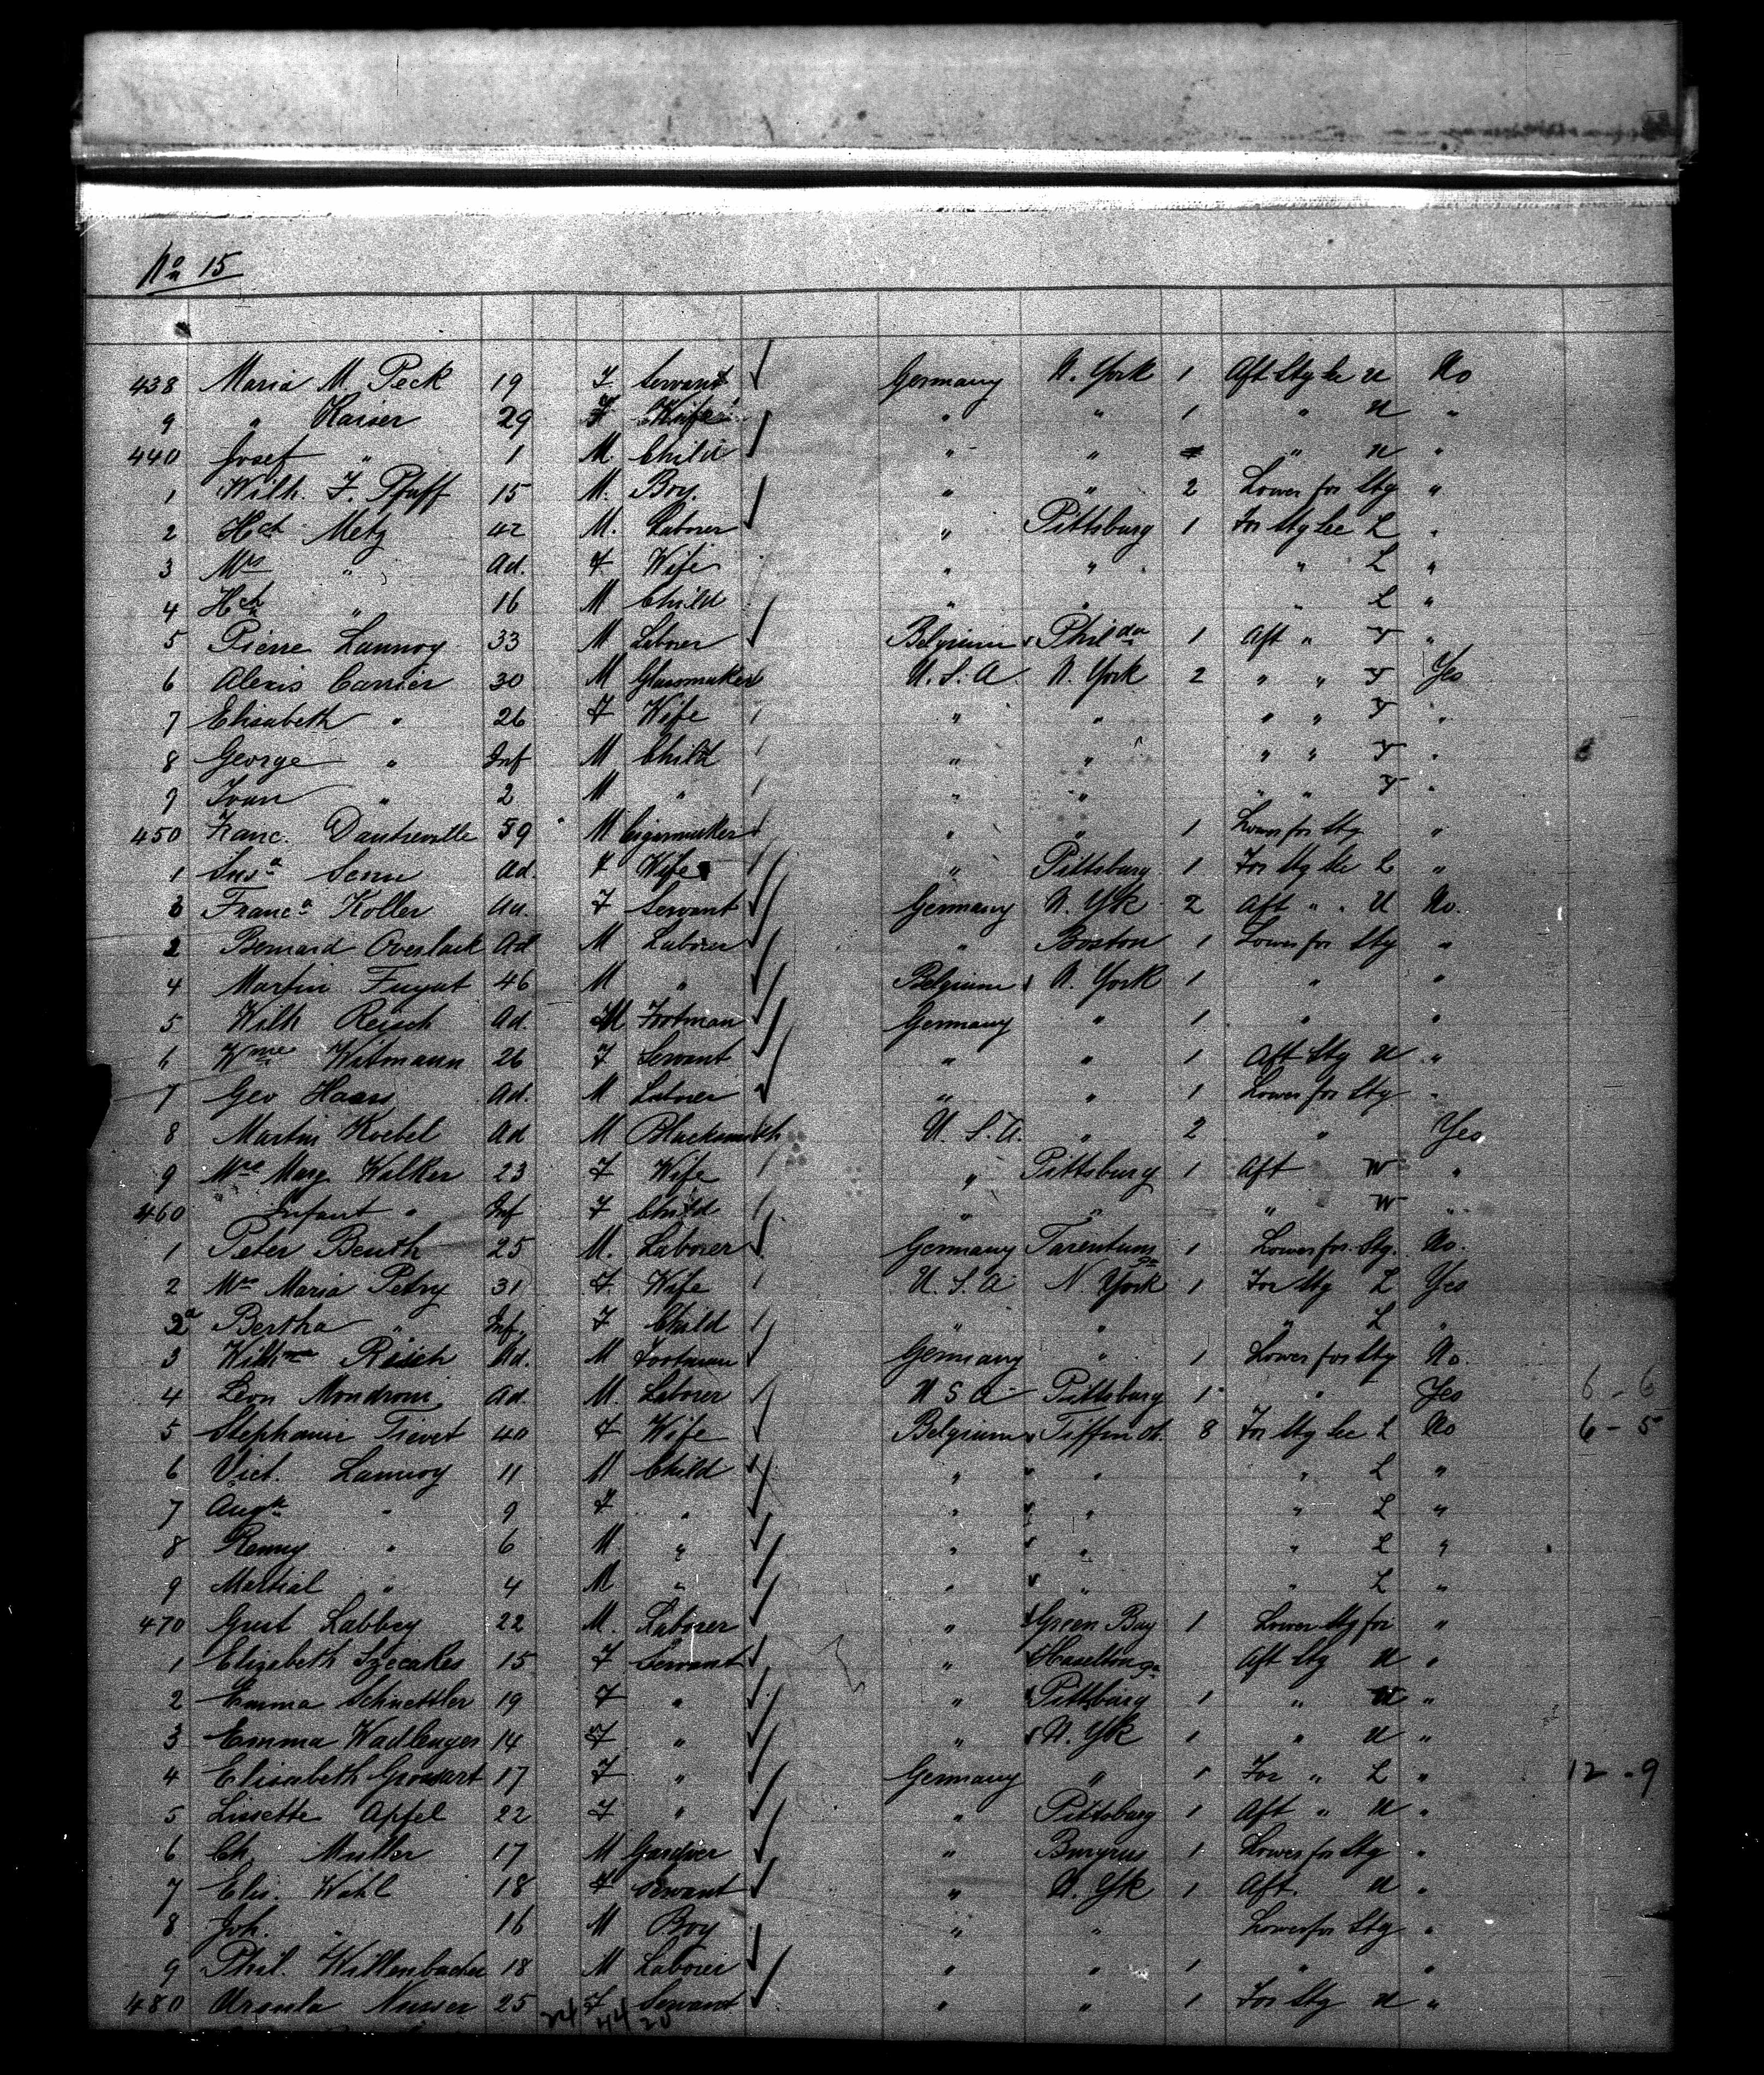 No 15
438 Maria M. Peck 19 F Servant Germany N. York 1 Aft Stg le U No
9 " Kaiser 29 F Wife " " 1 " U "
440 Josef " 1 M Child " " " U "
1 Wilh. F. Pfaff 15 M. Boy. " " 2 Lower for Stg "
2 Hch Metz 42 M. Laborer " Pittsburg 1 For Stg lee L "
3 Mrs " Ad. F Wife " " " L "
4 Hch " 16 M Child " " " L "
5 Pierre Lannoy 33 M Laborer Belgium Philda 1 Aft " F "
6 Alexis Carrier 30 M Glassmaker U.S.A N. York 2 " " F Yes
7 Elisabeth " 26 F Wife " " " " F "
8 George " Inf M Child " " " " F "
9 Ivan " 2 M " " " " " F "
450 Franc. Dautreville 59 M Cigarmaker " " 1 Lower for Stg "
1 Susa Senn Ad. F Wife " Pittsburg 1 For Stg lee L "
3 Franca Koller Ad. F Servant Germany N. Yk 2 Aft " " U No.
2 Bernard Overlack Ad M Laborer " Boston 1 Lower for Stg "
4 Martin Fugut 46 M " Belgium N. York 1 " "
5 Wilh Reisch Ad. M Footman Germany " 1 " "
6 Wme Witmann 26 F Servant " " 1 Aft Stg U "
7 Geo Haass Ad. M Laborer " " 1 Lower for Stg "
8 Martin Koebel Ad M Blacksmith U.S.A. " 2 " Yes
9 Mrs Marg Walker 23 F Wife " Pittsburg 1 Aft W "
460 " Infant " Inf F Child " " " W "
1 Peter Beuth 25 M. Laborer Germany Tarentum Pa 1 Lower for Stg. No.
2 Mrs Maria Petry 31 F. Wife U.S.A N. York 1 For Stg L Yes
2a Bertha " Inf. F Child " " " L "
3 Wilh Risch Ad. M Footman Germany " 1 Lower for Stg No.
4 Leon Mondron Ad. M. Laborer U S A Pittsburg 1 " Yes 6 - 6
5 Stephanie Tievet 40 F Wife Belgium Tiffin O. 8 For Stg lee L No 6 - 5
6 Vict. Lannoy 11 M Child " " " L "
7 Augte " 9 F " " " " L "
8 Remy " 6 M " " " " L "
9 Martial " 4 M " " " " L "
470 Gust Labbey 22 M. Laborer " Green Bay 1 Lower Stg for "
1 Elizebeth Szecakes 15 F Servant " Haselton Pa Aft Stg U "
2 Emma Schnettler 19 F " " Pittsburg 1 " U "
3 Emma Wadlenger 14 F " " N. Yk 1 " U "
4 Elisabeth Grossart 17 F " Germany " 1 For " L " 12 - 9
5 Lissette Apfel 22 F " " Pittsburg 1 Aft " U "
6 Ch. Muller 17 M Gardner " Bucyrus 1 Lower for Stg "
7 Elis. Wahl 18 F Servant " N. Yk 1 Aft. U "
8 Joh. " 16 M Boy " " Lower for Stg "
9 Phil. Willenbacher 18 M Laborer " " 1 " "
480 Ursula Nusser 25 F Servant " " 1 For Stg U "
24 44 20